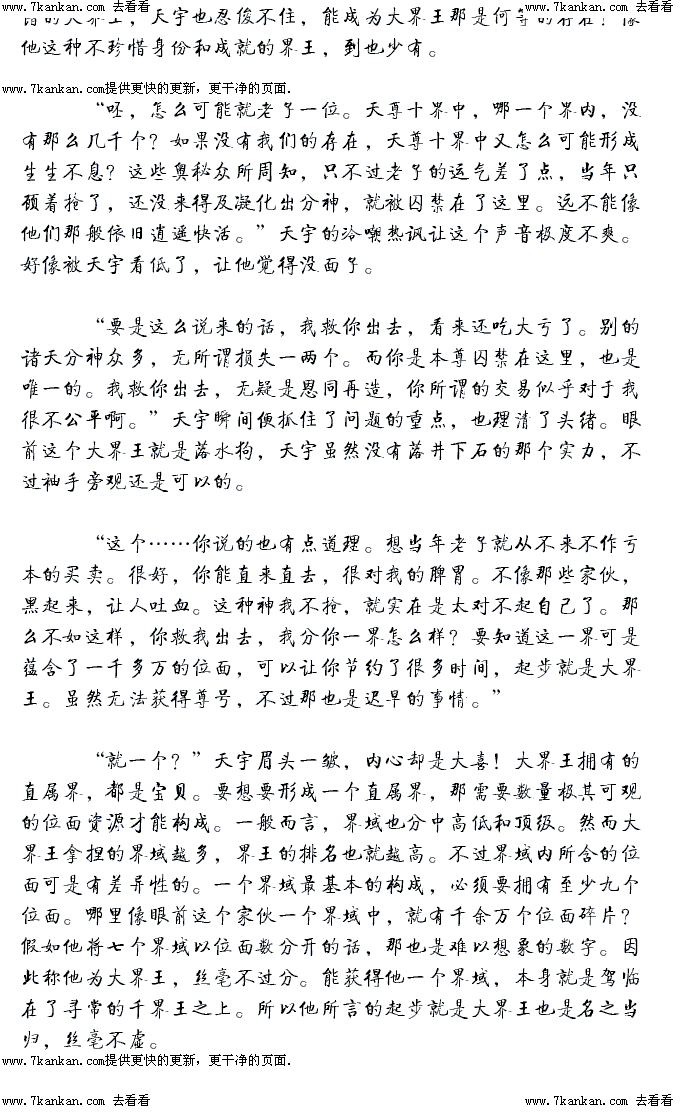 www.7kankan.com 去看看 www.7kankan.com 去看看
诸的大界王，天宇也忍俊不住，能成为大界王那是何等的存在？像
他这种不珍惜身份和成就的界王，到也少有。
www.7kankan.com提供更快的更新，更干净的页面.
“呸，怎么可能就老子一位。天尊十界中，哪一个界内，没
有那么几千个？如果没有我们的存在，天尊十界中又怎么可能形成
生生不息？这些奥秘众所周知，只不过老子的运气差了点，当年只
顾着抢了，还没来得及凝化出分神，就被囚禁在了这里。远不能像
他们那般依旧逍遥快活。”天宇的冷嘲热讽让这个声音极度不爽。
好像被天宇看低了，让他觉得没面子。
“要是这么说来的话，我救你出去，看来还吃大亏了。别的
诸天分神众多，无所谓损失一两个。而你是本尊囚禁在这里，也是
唯一的。我救你出去，无疑是恩同再造，你所谓的交易似乎对于我
很不公平啊。”天宇瞬间便抓住了问题的重点，也理清了头绪。眼
前这个大界王就是落水狗，天宇虽然没有落井下石的那个实力，不
过袖手旁观还是可以的。
“这个……你说的也有点道理。想当年老子就从不来不作亏
本的买卖。很好，你能直来直去，很对我的脾胃。不像那些家伙，
黑起来，让人吐血。这种神我不抢，就实在是太对不起自己了。那
么不如这样，你救我出去，我分你一界怎么样？要知道这一界可是
蕴含了一千多万的位面，可以让你节约了很多时间，起步就是大界
王。虽然无法获得尊号，不过那也是迟早的事情。”
“就一个？”天宇眉头一皱，内心却是大喜！大界王拥有的
直属界，都是宝贝。要想要形成一个直属界，那需要数量极其可观
的位面资源才能构成。一般而言，界域也分中高低和顶级。然而大
界王拿捏的界域越多，界王的排名也就越高。不过界域内所含的位
面可是有差异性的。一个界域最基本的构成，必须要拥有至少九个
位面。哪里像眼前这个家伙一个界域中，就有千余万个位面碎片？
假如他将七个界域以位面数分开的话，那也是难以想象的数字。因
此称他为大界王，丝毫不过分。能获得他一个界域，本身就是驾临
在了寻常的千界王之上。所以他所言的起步就是大界王也是名之当
归，丝毫不虚。
www.7kankan.com提供更快的更新，更干净的页面.
www.7kankan.com 去看看 www.7kankan.com 去看看